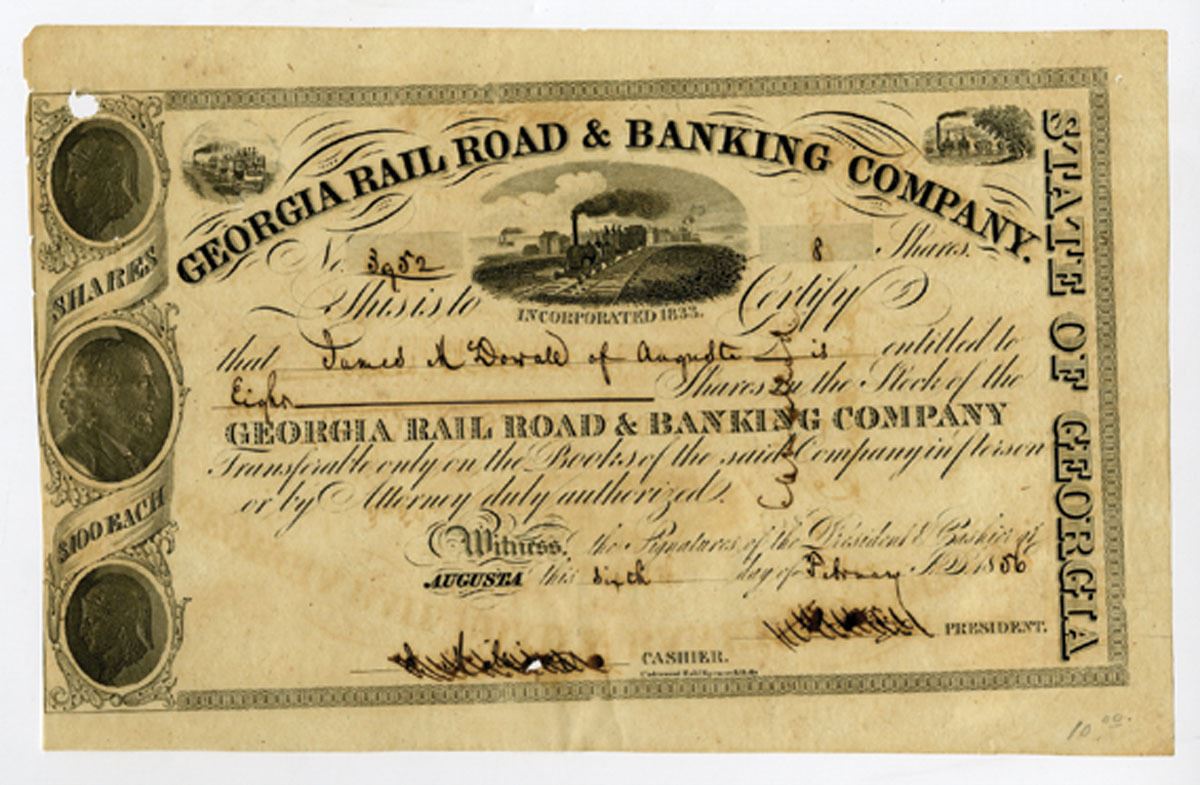 GEORGIA RAIL ROAD & BANKING COMPANY.
No. 3952
8 Shares.
INCORPORATED 1833.
This is to Certify
that James McDowall of Augusta is entitled to
Eight Shares in the Stock of the
GEORGIA RAIL ROAD & BANKING COMPANY
Transferable only on the Books of the said Company in person
or by Attorney duly authorized.
Witness, the Signatures of the President & Cashier at
AUGUSTA this sixth day of February A.D. 1856
PRESIDENT.
CASHIER.
SHARES
$100 EACH
STATE OF GEORGIA
Cancelled
10.00